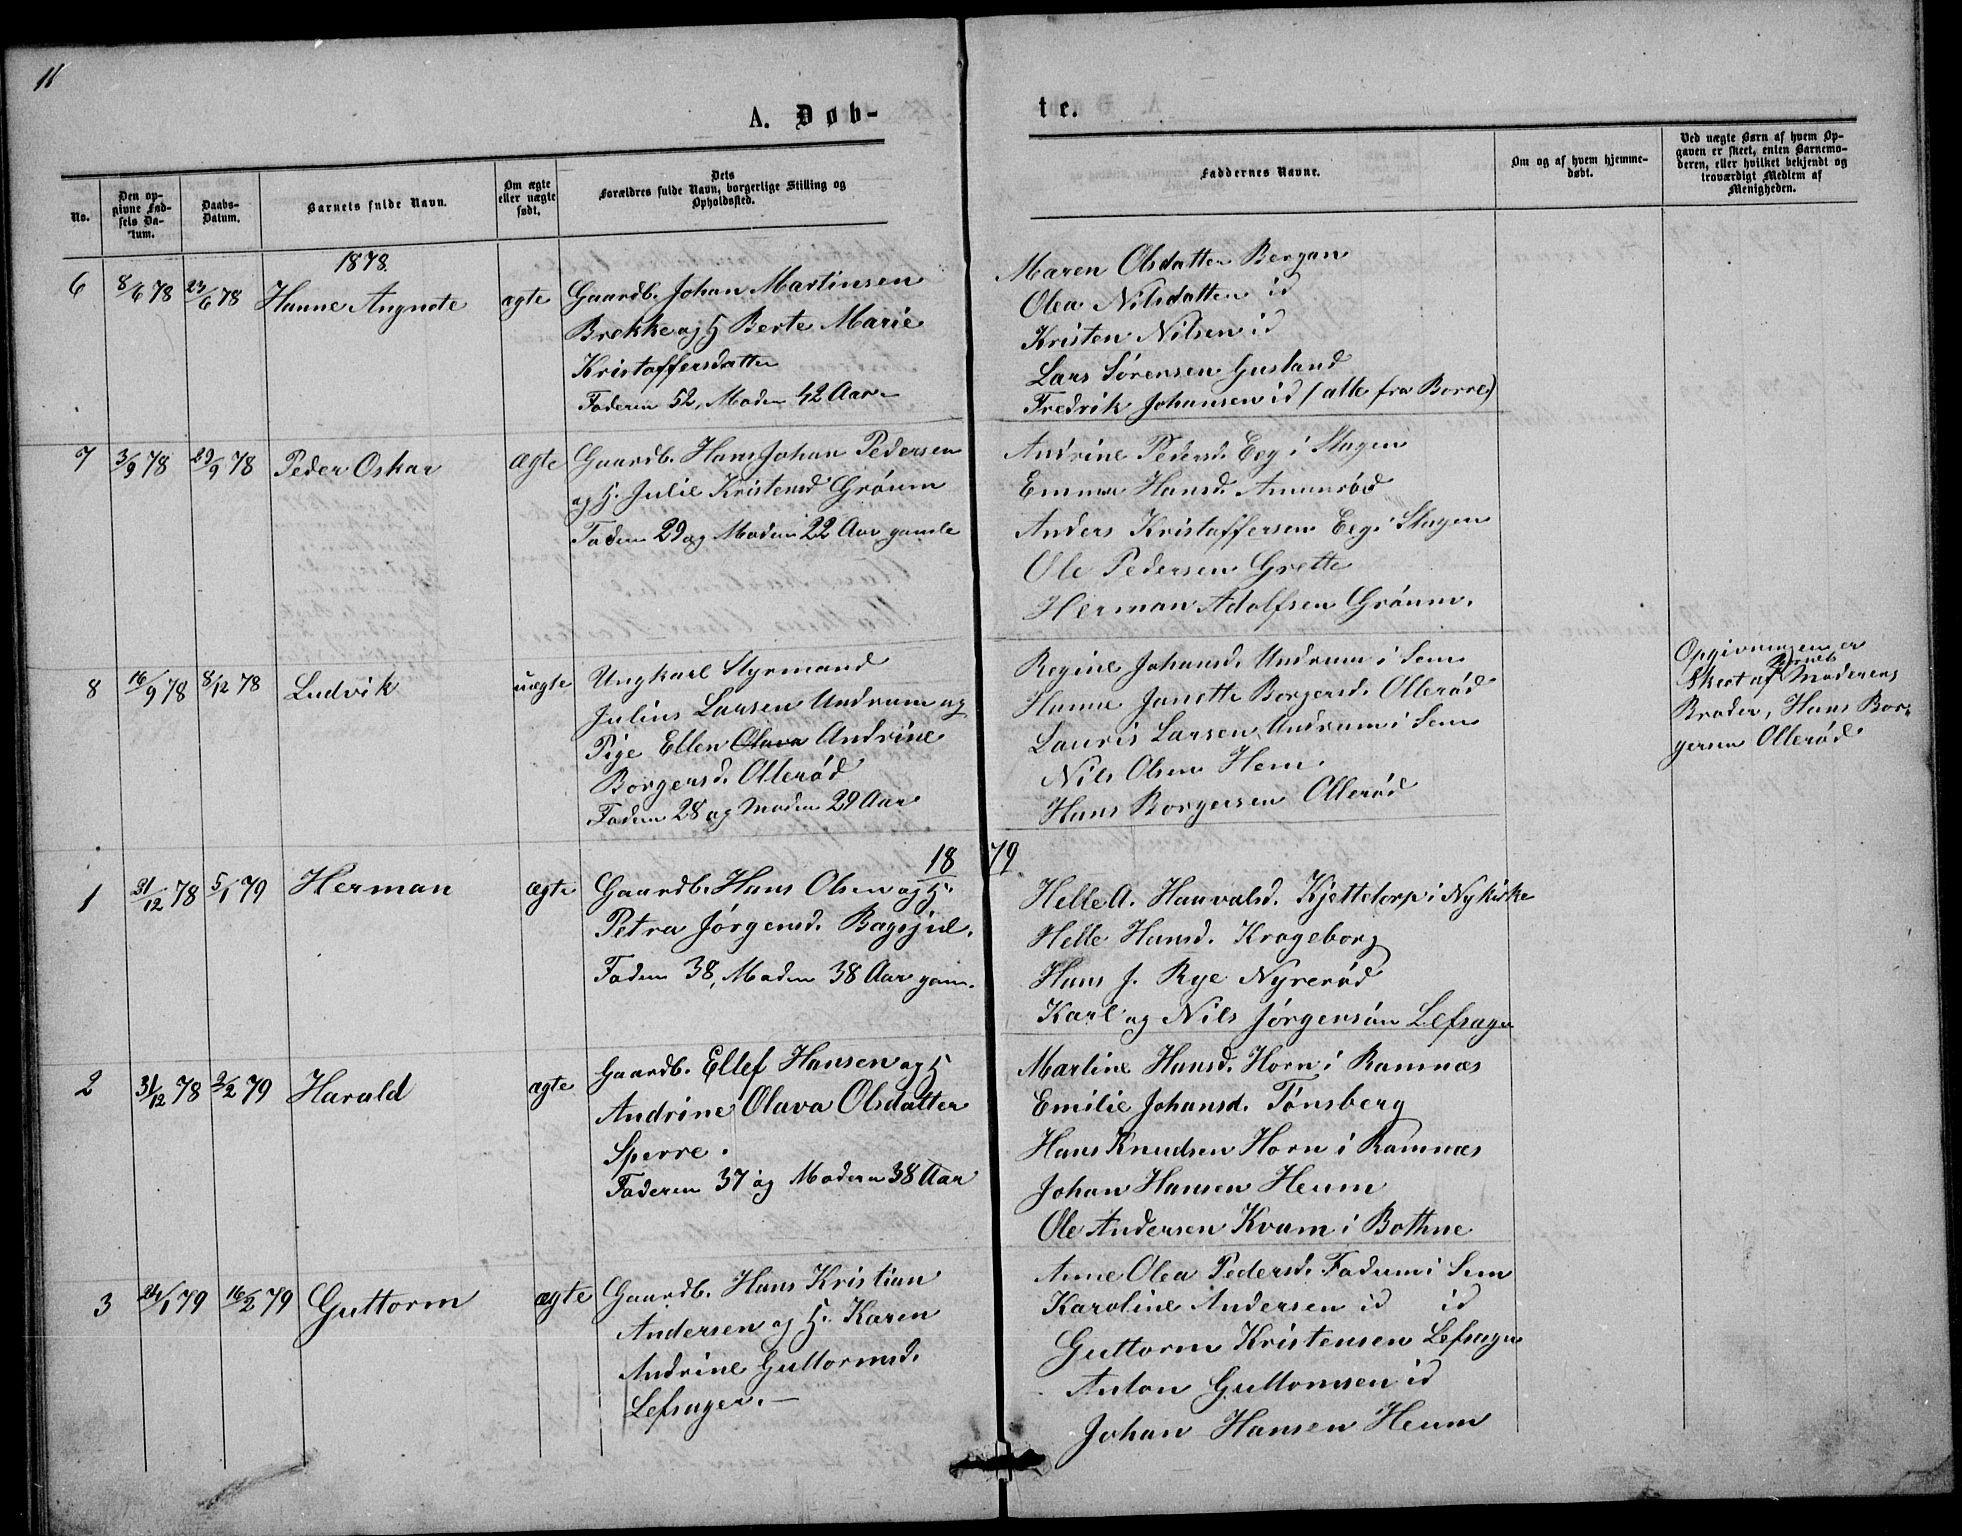 11
A. Døb-
te.
No.
Den opgivne Fødsels Datum.
Daabs-Datum.
Barnets fulde Navn.
Om ægte eller uægte født.
Dets Forældres fulde Navn, borgerlige Stilling og Opholdssted.
Faddernes Navne.
Om og af hvem hjemmedøbt.
Ved uægte Børn af hvem Opgaven er skeet, enten Barnemoderen, eller hvilket bekjendt og troværdigt Medlem af Menigheden.
1878.
6 8/6 78 23/6 78 Hanne Angnete ægte Gaardb. Johan Martinsen
Brekke og H Berte Marie
Kristoffersdatter
Faderen 52, Moderen 42 Aar
Maren Olsdatter Bergan
Olea Nilsdatter id
Kristen Nilsen id
Lars Sørensen Gusland
Fredrik Johansen id (alle fra Borre)
7 3/9 78 29/9 78 Peder Oskar Ægte Gaardb. Hans Johan Pedersen
og H. Julie Kristensd Gróum
Faderen 29 og Moderen 22 Aar gamle
Andrine Pedersd. Eeg i Slagen
Emma Hansd. Amunrød
Anders Kristoffersen Eeg i Slagen
Ole Pedersen Grette
Herman Adolfsen Gróum.
8 16/9 78 8/12 78 Ludvik uægte Ungkarl Styrmand
Julius Larsen Undrum og
Pige Ellen Olava Andrine
Borgersd. Ollerød
Faderen 28 og Moderen 29 Aar
Regine Johansd. Undrum i Sem
Hanne Janette Borgersd. Ollerød
Lauris Larsen Undrum i Sem
Nils Olsen Hem
Hans Borgersen Ollerød
Opgivningen er
Skeet af Barnets Moderens
Broder, Hans Bor-
gersen Ollerød
1879.
1 31/12 78 5/1 79 Herman ægte Gaardb. Hans Olsen og H.
Petra Jørgensd. Bagsjul.
Faderen 38, Moderen 38 Aar gam.
Helle A. Hauvalsd. Kjettelorp i Nykirke
Helle Hansd. Krageborg
Hans J. Rye Nyrerød
Karl og Nils Jørgensøn Lefsager
2 31/12 78 2/2 79 Harald ægte Gaardb. Ellef Hansen og H
Andrine Olava Olsdatter
Sperre.
Faderen 37 og Moderen 38 Aar
Martine Hansd. Horn i Ramnæs
Emilie Johansd. Tønsberg
Hans Knudsen Horn i Ramnæs
Johan Hansen Heum
Ole Andersen Kvam i Bothne
3 24/1 79 16/2 79 Guttorm ægte Gaardb. Hans Kristian
Andersen og H. Karen
Andrine Guttormsd.
Lefsager. —
Anne Olea Pedersd. Fadum i Sem
Karoline Andersen id id
Guttorm Kristensen Lefsager
Anton Guttormsen id
Johan Hansen Heum